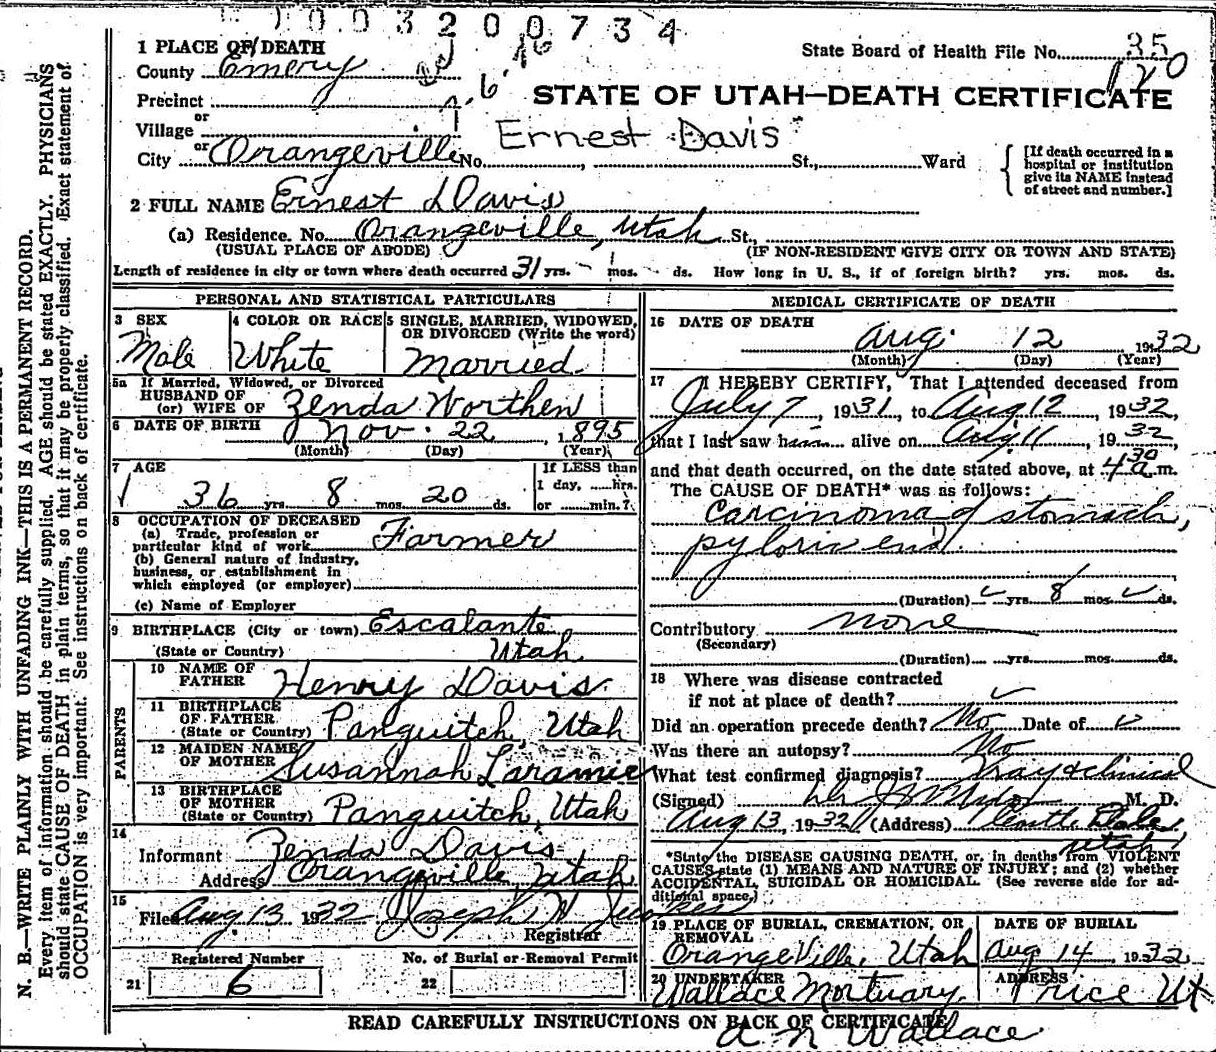 003200734
1 PLACE OF DEATH
State Board of Health File No. 35
120
County Emery
Precinct
STATE OF UTAH—DEATH CERTIFICATE
or
Village
Ernest Davis
or
City Orangeville No. St., Ward
[If death occurred in a hospital or institution give its NAME instead of street and number.]
2 FULL NAME Ernest Davis
(a) Residence. No. Orangeville, Utah St.,
(USUAL PLACE OF ABODE) (IF NON-RESIDENT GIVE CITY OR TOWN AND STATE)
Length of residence in city or town where death occurred 31 yrs. - mos. - ds. How long in U. S., if of foreign birth? yrs. mos. ds.
PERSONAL AND STATISTICAL PARTICULARS
3 SEX
Male
4 COLOR OR RACE
White
5 SINGLE, MARRIED, WIDOWED, OR DIVORCED (Write the word)
Married
5a If Married, Widowed, or Divorced
HUSBAND OF
(or) WIFE OF Zenda Worthen
6 DATE OF BIRTH Nov. 22, 1895
(Month) (Day) (Year)
7 AGE
36 yrs. 8 mos. 20 ds.
If LESS than
1 day, ......hrs.
or ......min.?
8 OCCUPATION OF DECEASED
(a) Trade, profession or
particular kind of work Farmer
(b) General nature of industry,
business, or establishment in
which employed (or employer)
(c) Name of Employer
9 BIRTHPLACE (City or town) Escalante
(State or Country) Utah
PARENTS
10 NAME OF
FATHER Henry Davis
11 BIRTHPLACE
OF FATHER
(State or Country) Panguitch, Utah
12 MAIDEN NAME
OF MOTHER Susannah Laramie
13 BIRTHPLACE
OF MOTHER
(State or Country) Panguitch, Utah
14
Informant Zenda Davis
Address Orangeville, Utah
15
Filed Aug 13 1932 Joseph
Registrar
Registered Number
21 6
No. of Burial or Removal Permit
22
MEDICAL CERTIFICATE OF DEATH
16 DATE OF DEATH
Aug. 12 1932
(Month) (Day) (Year)
17 I HEREBY CERTIFY, That I attended deceased from
July 7, 1931, to Aug 12, 1932,
that I last saw him alive on Aug 11, 1932
and that death occurred, on the date stated above, at 4 30 a m.
The CAUSE OF DEATH* was as follows:
Carcinoma of stomach,
pyloric end.
(Duration) yrs. 8 mos. ds.
Contributory none
(Secondary)
(Duration) yrs. mos. ds.
18 Where was disease contracted
if not at place of death?
Did an operation precede death? No Date of
Was there an autopsy? No
What test confirmed diagnosis? Xray & clinical
(Signed) M. D.
Aug 13, 1932 (Address) Castle Dale,
Utah
*State the DISEASE CAUSING DEATH, or, in deaths from VIOLENT
CAUSES state (1) MEANS AND NATURE OF INJURY; and (2) whether
ACCIDENTAL, SUICIDAL OR HOMICIDAL. (See reverse side for ad-
ditional space.)
19 PLACE OF BURIAL, CREMATION, OR
REMOVAL
OrangeVille, Utah
DATE OF BURIAL
Aug 14, 1932
20 UNDERTAKER
Wallace Mortuary
ADDRESS
Price Ut
READ CAREFULLY INSTRUCTIONS ON BACK OF CERTIFICATE
A N Wallace
N. B.—WRITE PLAINLY WITH UNFADING INK—THIS IS A PERMANENT RECORD.
Every item of information should be carefully supplied. AGE should be stated EXACTLY. PHYSICIANS
should state CAUSE OF DEATH in plain terms, so that it may be properly classified. Exact statement of
OCCUPATION is very important. See instructions on back of certificate.